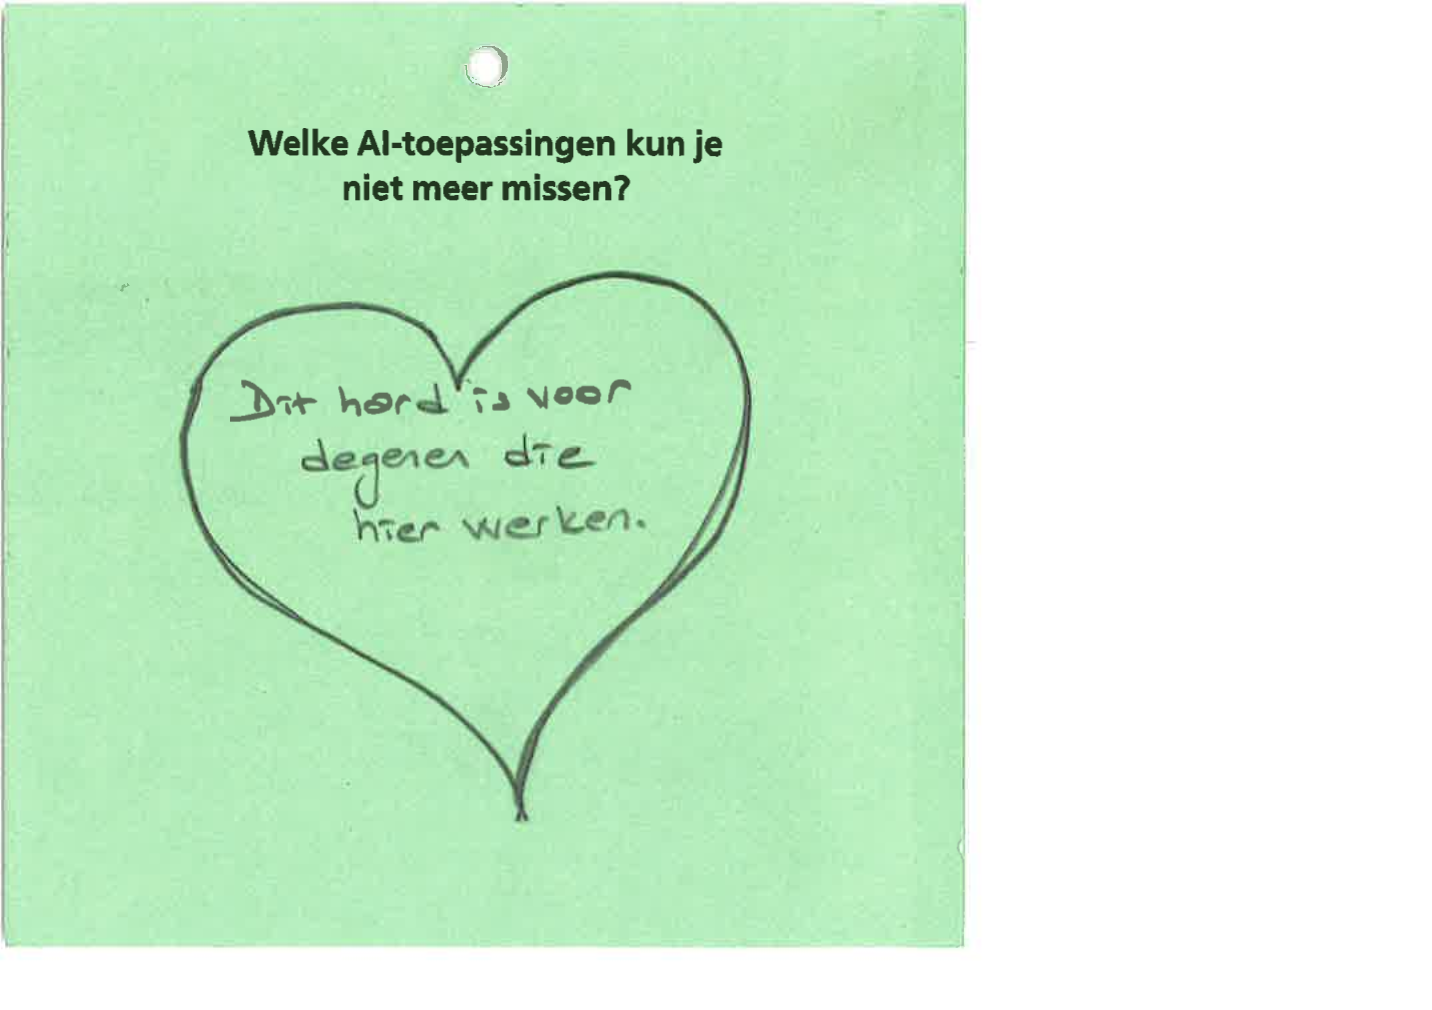 Welke AI-toepassingen kun je
niet meer missen?
Dit hard is voor
degenen die
hier werken.